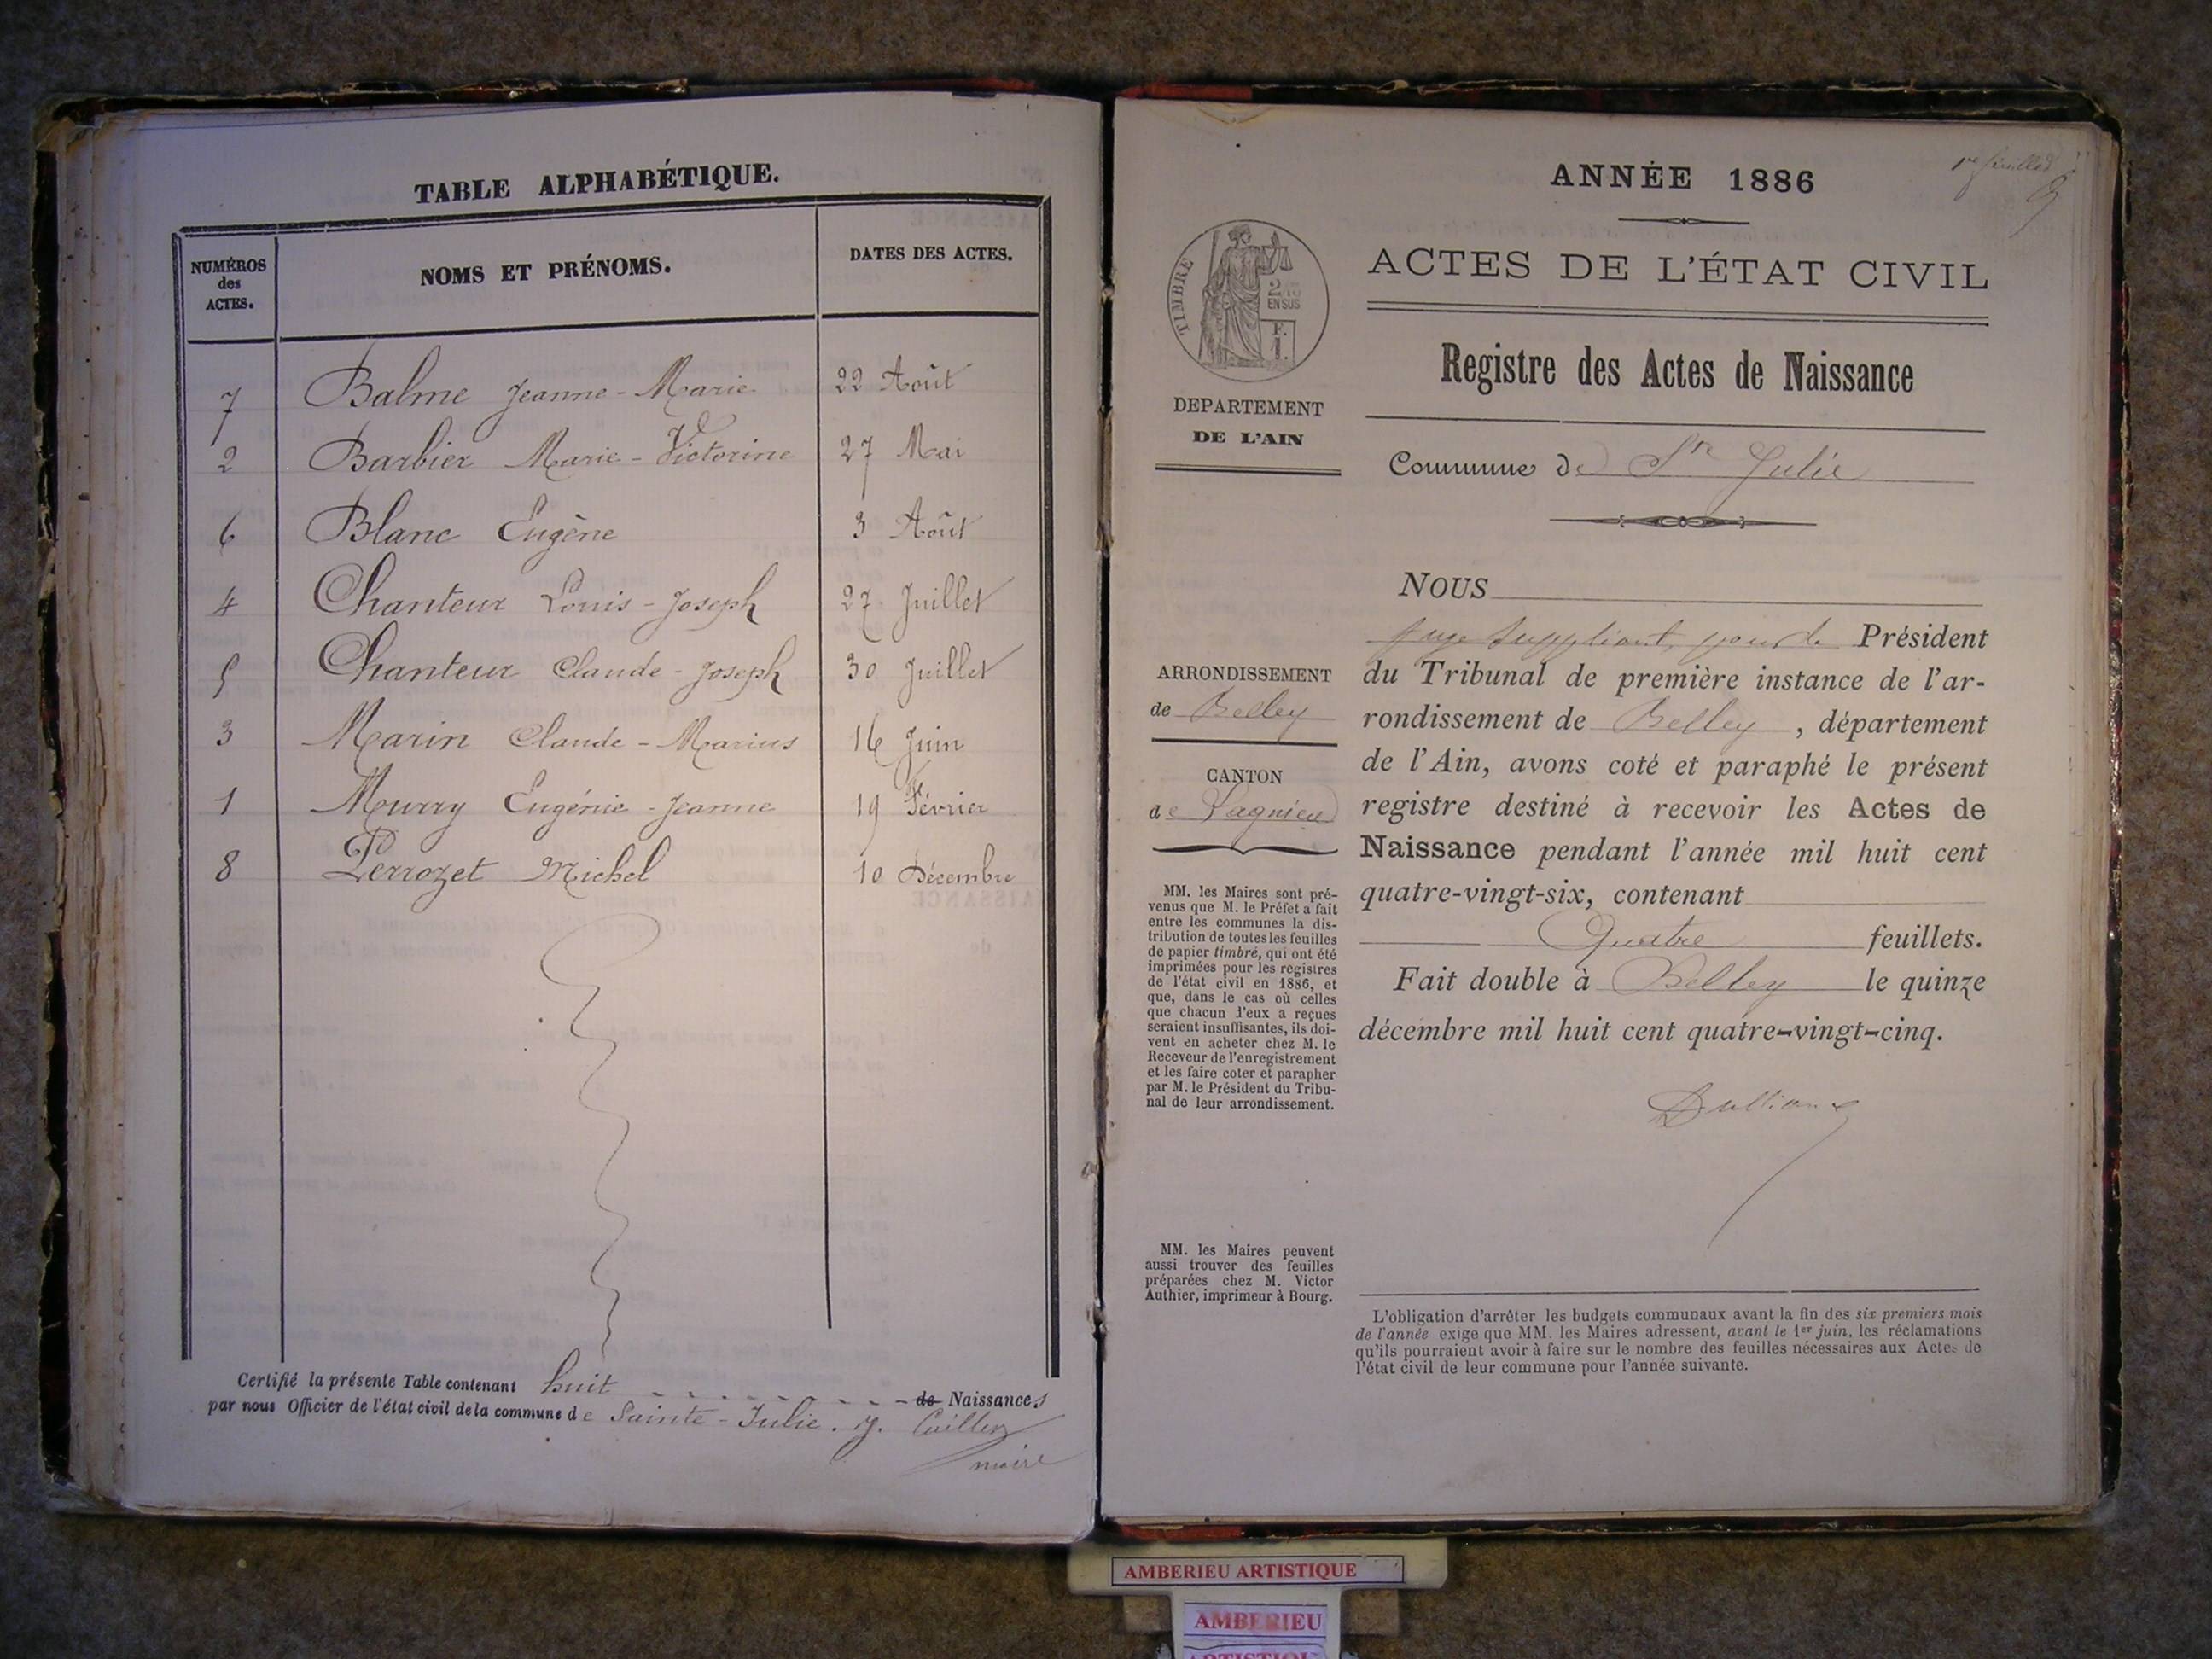 TABLE ALPHABÉTIQUE.
NUMÉROS des ACTES. NOMS ET PRÉNOMS. DATES DES ACTES.
7 Balme Jeanne-Marie 22 Août
2 Barbier Marie-Victorine 27 Mai
6 Blanc Eugène 3 Août
4 Chanteur Louis-Joseph 27 Juillet
5 Chanteur Claude-Joseph 30 Juillet
3 Marin Claude-Marius 16 Juin
1 Murry Eugénie-Jeanne 19 Février
8 Perrozet Michel 10 Décembre
Certifié la présente Table contenant huit de Naissances
par nous Officier de l'état civil de la commune de Sainte-Julie. J. Cuiller
maire
ANNÉE 1886
ACTES DE L'ÉTAT CIVIL
Registre des Actes de Naissance
Commune de Ste Julie
TIMBRE
2/10
EN SUS
F.
1.
DEPARTEMENT
DE L'AIN
ARRONDISSEMENT
de Belley
CANTON
de Lagnieu
MM. les Maires sont pré-
venus que M. le Préfet a fait
entre les communes la dis-
tribution de toutes les feuilles
de papier timbré, qui ont été
imprimées pour les registres
de l'état civil en 1886, et
que, dans le cas où celles
que chacun d'eux a reçues
seraient insuffisantes, ils doi-
vent en acheter chez M. le
Receveur de l'enregistrement
et les faire coter et parapher
par M. le Président du Tribu-
nal de leur arrondissement.
MM. les Maires peuvent
aussi trouver des feuilles
préparées chez M. Victor
Authier, imprimeur à Bourg.
NOUS
juge suppléant, pour le Président
du Tribunal de première instance de l'ar-
rondissement de Belley, département
de l'Ain, avons coté et paraphé le présent
registre destiné à recevoir les Actes de
Naissance pendant l'année mil huit cent
quatre-vingt-six, contenant
Quatre feuillets.
Fait double à Belley le quinze
décembre mil huit cent quatre-vingt-cinq.
L'obligation d'arrêter les budgets communaux avant la fin des six premiers mois
de l'année exige que MM. les Maires adressent, avant le 1er juin, les réclamations
qu'ils pourraient avoir à faire sur le nombre des feuilles nécessaires aux Actes de
l'état civil de leur commune pour l'année suivante.
AMBERIEU ARTISTIQUE
AMBERIEU